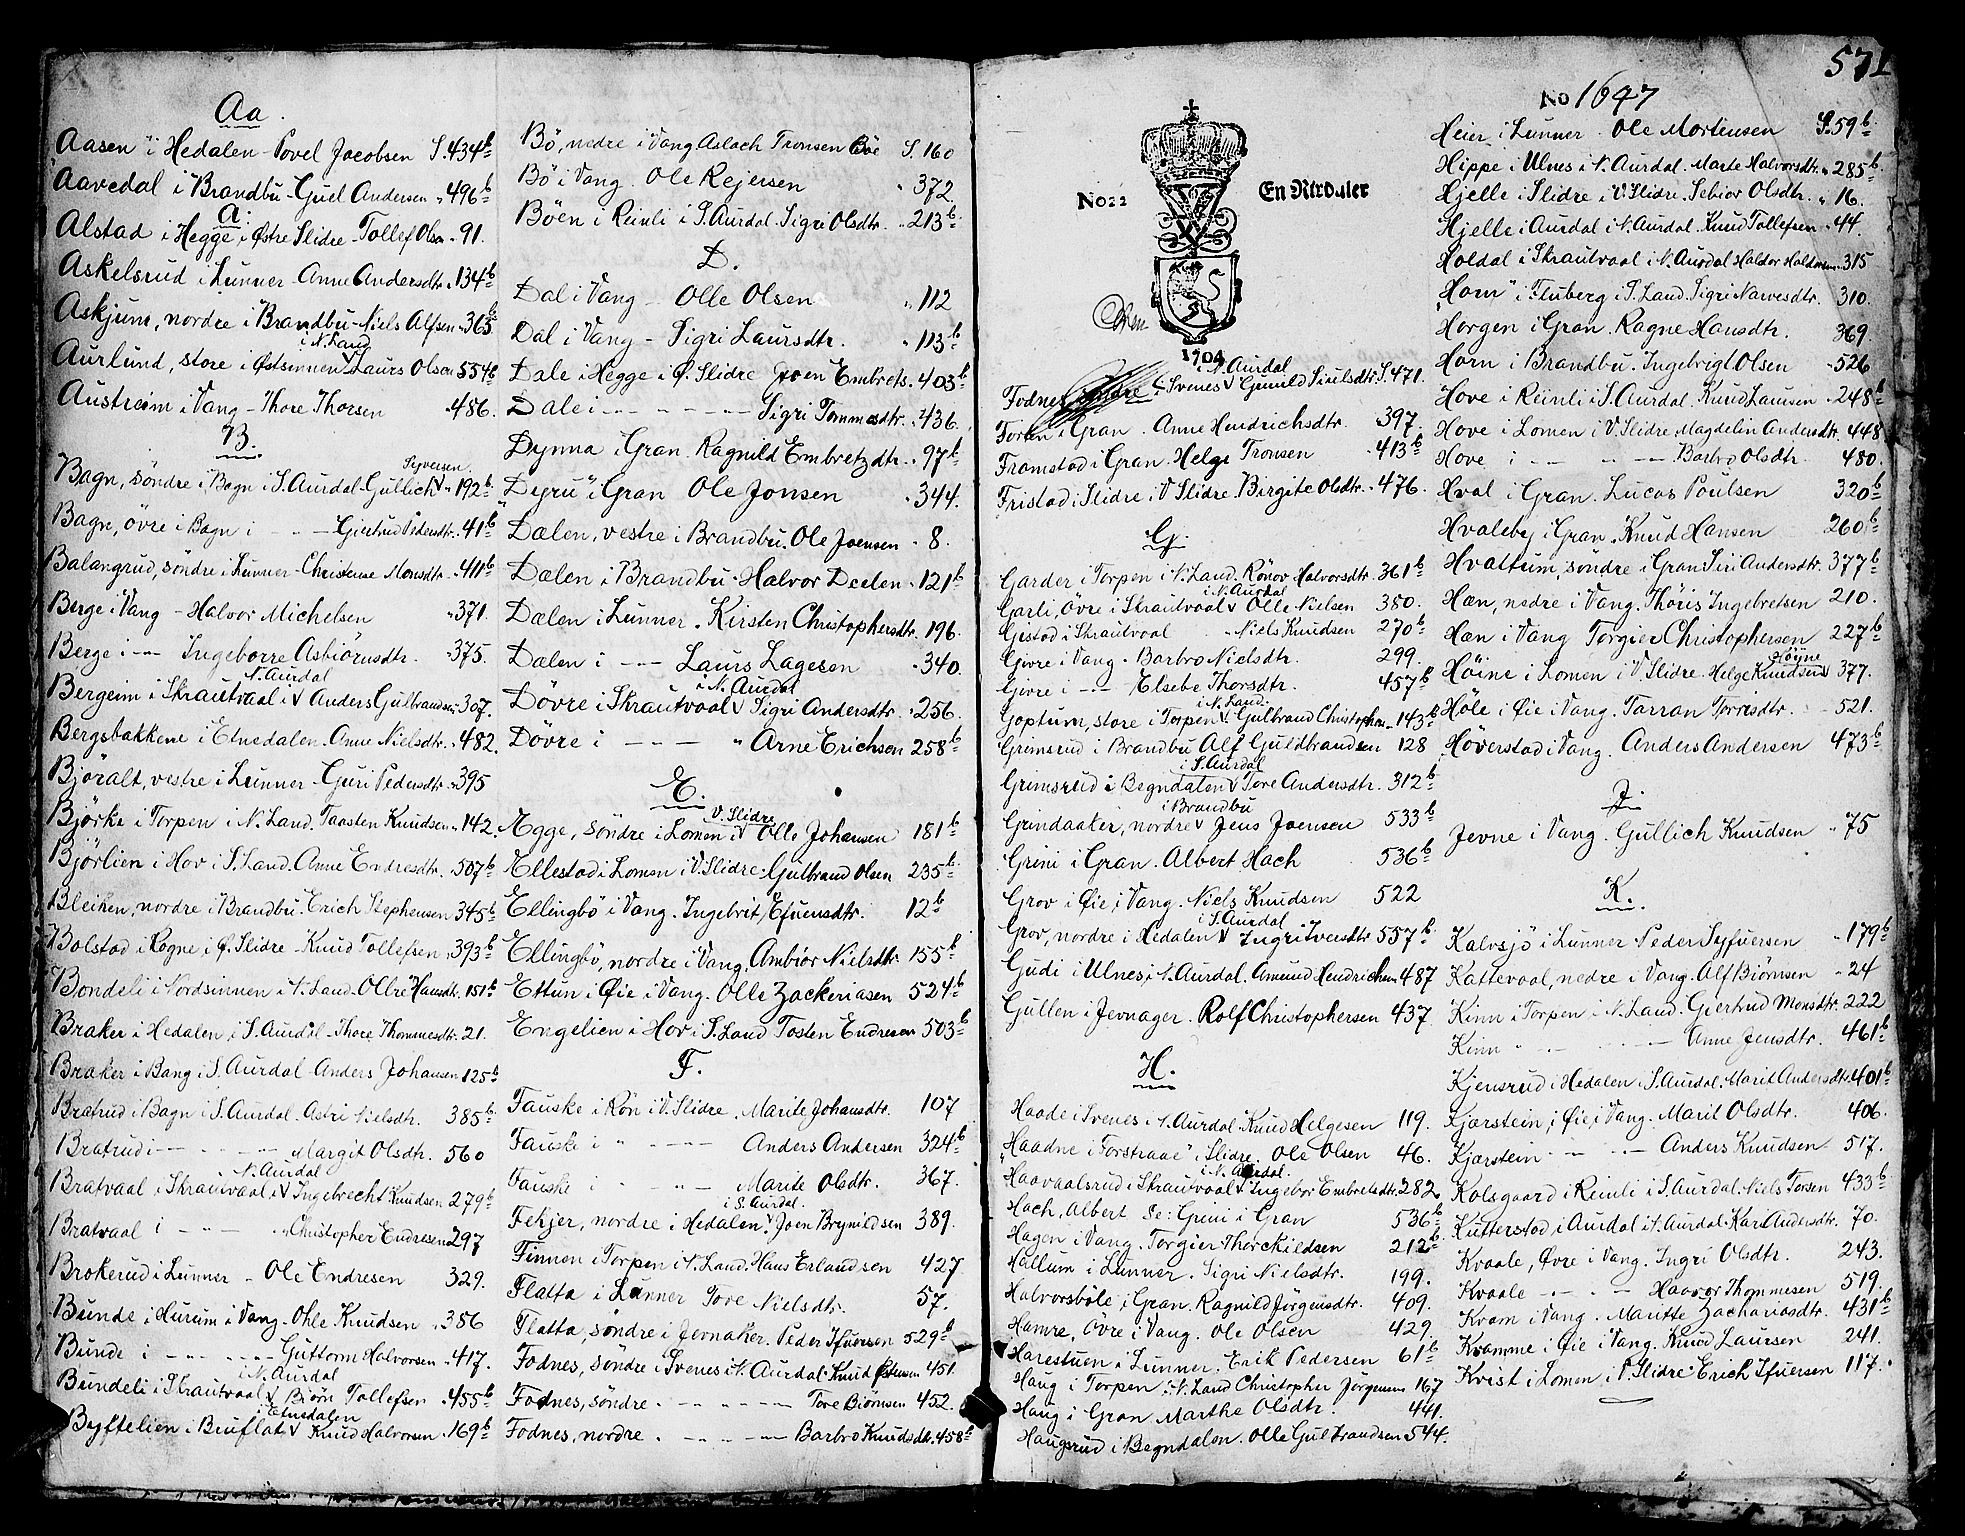 Aa.
"Aasen" i Hedalen - Povel Jacobsen S. 434b
Aavedal i Brandbu - Guel Andersen " 496b
A:
Alstad i Hegge i Østre Slidre - Tollef Olsen " 91.
Askelsrud i Lunner - Anne Andersdtr. " 134b
Askjum, nordre i Brandbu - Niels Alfsen " 363b
i N. Land
Aurlund, store i Østsinnen V Laurs Olsen 554b
Austreim i Vang - Thore Thorsen " 486.
B.
Syversen.
Bagn, söndre i Bagn i S. Aurdal - Gullich V " 192b
Bagn, övre i Bagn i - " - Gjertrud Pedersdtr. " 41b
Balangrud, söndre i Lunner - Christense Monsdtr. " 411b
Berge i Vang - Halvor Michelsen " 371.
Berge i --- Ingeborre Asbiörnsdtr. " 375.
N. Aurdal
Bergeim i Skrautvaal i V Anders Gulbrandsen 307.
Bergsbakkene i Etnedalen - Anne Nielsdtr. " 482.
Björalt, vestre i Lunner - Guri Pedersdtr. " 395
Björke i Torpen i N. Land. Taasten Knudsen " 142.
Björlien i Hov i S. Land. Anne Endresdtr. " 507b
Bleiken, nordre i Brandbu. Erich Stephensen 345b
Bolstad i Rogne i Ø. Slidre - Knud Tollefsen " 393b
Bondeli i Nordsinnen i N. Land. Ollre Hansdtr. 151b
Braker i Hedalen i S. Aurdal - Thore Thommesdtr. 21.
Braker i Bang i S. Aurdal - Anders Johansen 125b
Bratrud i Bagn i S. Aurdal - Astri Nielsdtr. 385b
Bratrud i --- - - - Margit Olsdtr. 560
i N. Aurdal
Bratvaal i Skrautvaal i V Ingebrecht Knudsen 279b
Bratvaal i - - " - - " Christopher Endresen 297
Brokerud i Lunner - Ole Endresen 329.
Bunde i Hurum i Vang - Ohle Knudsen " 356
Bunde i - - - - - - Guttorm Halvorsen " 417.
i N. Aurdal
Bundeli i Skrautvaal V Biörn Tollefsen " 455b
i Etnedalen
Byftelien i Bruflat V Knud Halvorsen " 169b
Bö, nedre i Vang. Aslach Tronsen Böe S. 160
Bö i Vang. Ole Rejersen " 372
Böen i Reinli i S. Aurdal - Sigri Olsdtr. " 213b
D.
Dal i Vang - Olle Olsen " 112
Dal i Vang - Sigri Laursdtr. " 113b
Dale i Hegge i Ø. Slidre Joen Embrets. " 403b
Dale i - - - - - - - - Sigri Tommesdtr. " 436.
Dynna i Gran. Ragnild Embretzdtr. " 97b
"Dyru" i Gran Ole Jonsen " 344.
Dælen, vestre i Brandbu. Ole Joensen " 8.
Dælen i Brandbu - Halvor Deelen " 121b
Dælen i Lunner. Kirsten Christophersdtr. 196.
Dælen i --- Laurs Lagesen " 340.
i N. Aurdal
Dövre i Skrautvaal V Sigri Andersdtr. " 256.
Dövre i - - - " Arne Erichsen 258b
E.
V. Slidre
Egge, söndre i Lomen i V Olle Johansen 181b
Ellestad i Lomen i V. Slidre. Gulbrand Olsen 235b
Ellingbö i Vang. Ingebrit Efuensdtr. 12b
Ellingbö, nordre i Vang. Ambior Nielsdtr. 155b
Ettun i Øie i Vang. Olle Zackeriasen 524b
Engelien i Hov i S. Land Tosten Endresen 503b
F.
Fauske i Røn i V. Slidre. Marite Johansdtr. 107
Fauske i " - - - - Anders Andersen 324b
Fauske i - - - " - Marite Olsdtr. 367.
i S. Aurdal.
Fekjer, nordre i Hedalen V Joen Brynildsen 389.
Finnen i Torpen i N. Land. Hans Erlandsen 427
Flatta i Lunner Tore Nielsdtr. 57.
Flatta, söndre i Jevnaker. Peder Ifuersen 529b
Fodnes, söndre i Svenes i N. Aurdal. Knud Østensen 451.
Fodnes, söndre. - - - - - - - Tore Biörnsen 452.
Fodnes, nordre. - - - - - Barbro Knudsdtr. 458b
571
No22
En Rixdaler
1704
i N. Aurdal
Fodnes, i Svenes V Gunild Siulsdtr. S. 471.
i Gran. Anne Hendrichsdtr. 397.
Framstad i Gran. Helge Tronsen " 413b
Fristad i Slidre i V. Slidre. Birgite Olsdtr. " 476.
G.
Garder i Torpen i N. Land. Rönov Halvorsdtr. 361b
i N. Aurdal
Garli, Övre i Skrautvaal V Olle Nielsen 380.
Gestad i Skrautvaal " Niels Knudsen 270b
Givre i Vang. Barbro Nielsdtr. 299.
Givre i --- Elsebe Thorsdtr. 457b
i N. Land.
Goptum, store i Torpen V. Gulbrand Christophersen 143b
Grimsrud i Brandbu Alf Guldbrandsen 128
i S. Aurdal
Grimsrud i Begndalen V Tore Andersdtr. 312b
i Brandbu
Grindaaker, nordre V Jens Joensen 533b
Grini i Gran. Albert Hach 536b
Grov i Øie i Vang. Niels Knudsen 522
i S. Aurdal
Grov, nordre i Hedalen V Ingri Iversdtr 557b
Gudi i Ulnes i N. Aurdal. Amund Hendrichsen 487
Gullen i Jevnager. Rolf Christophersen 437
H.
Haade i Svenes i N. Aurdal. Knud Helgesen 119.
"Haadne i Forstraae" i Slidre. Ole Olsen 46.
i N. Aurdal.
Haavaalsrud i Skrautvaal V Ingebor Embretsdtr. 282.
Hach, Albert Se: Grini i Gran 536b
Hagen i Vang. Torgier Thorckildsen 212b
Hallum i Lunner. Sigri Nielsdtr. 199.
Halvorsböle i Gran. Ragnild Jörgensdtr. 409.
Hamre, Övre i Vang. Ole Olsen 429.
Harestuen i Lunner. Erik Pedersen 61b
Haug i Torpen i N. Land Christopher Jörgensen 167
Haug i Gran Marthe Olsdtr. 441.
Haugsrud i Begndalen. Olle Gulbrandsen 544.
No 1647
Heier i Lunner. Ole Mortensen S. 59b
Hippe i Ulnes i N. Aurdal. Marte Halvorsdtr. " 285b
Hjelle i Slidre i V. Slidre. Sebior Olsdtr. " 16.
Hjelle i Aurdal i N. Aurdal. Knud Tollefsen " 44.
Holdal i Skrautvaal i N. Aurdal Haldor Haldorsen 315
"Horn" i Fluberg i S. Land. Sigri Narvesdtr. 310.
Horgen i Gran. Ragne Hansdtr. 369.
Horn i Brandbu. Ingebrigt Olsen " 526
Hove i Reinli i S. Aurdal. Knud Laursen " 248b
Hove i Lomen i V. Slidre. Magdelin Andersdtr. 448
Hove i -- " -- Barbro Olsdtr. 480.
Hval i Gran. Lucas Poulsen 320b
Hvaleby i Gran. Knud Hansen 260b
Hvattum, söndre i Gran Siri Andersdtr. 377b
Hæn, nedre i Vang. Thöris Ingebretsen 210.
Hæn i Vang Torgier Christophersen 227b
Høyne
Höine i Lomen i V. Slidre. Helge Knudsen V 377.
Höle i Øie i Vang. Tarran Torrisdtr. " 521.
Höverstad i Vang. Anders Andersen 473b
J.
Jevne i Vang. Gullich Knudsen " 75
K.
Kalvsjö i Lunner Peder Syfuersen " 179b
Kattevaal, nedre i Vang. Alf Biörnsen " 24
Kinn i Torpen i N. Land. Giertrud Monsdtr. 222
Kinn " - - - - - Anne Jensdtr. 461b
Kjensrud i Hedalen i S. Aurdal. Marit Andersdtr. 401b
Kjærstein i Øie i Vang. Marit Olsdtr. 406.
Kjærstein - - - - Anders Knudsen 517.
Kolsgaard i Reinli i S. Aurdal. Niels Torsen 433b
Kutterstad i Aurdal i N. Aurdal. Kari Andersdtr. 70.
Kvaale, Övre i Vang. Ingri Olsdtr. 243.
Kvaale - - - - Haavor Thommesen 519.
Kvam i Vang. Maritte Zachariasdtr. 431b
Kvamme i Øie i Vang. Knud Laursen 241.
Kvist i Lomen i V. Slidre Erich Ifuersen 117.